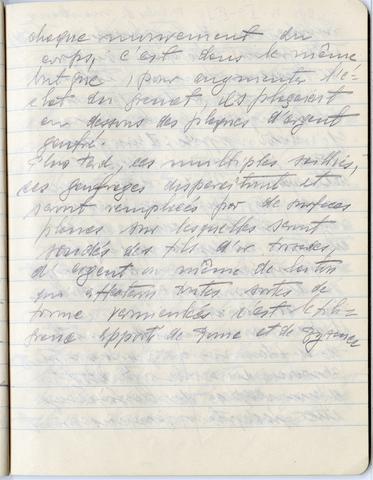 chaque mouvement du
corps, c'est dans le même
but que, pour augmenter l'é-
clat du grenat, ils plaçaient
en dessous des plaques d'argent
gaufré.
Plus tard, ces multiples saillies,
ces gaufrages disparaîtront et
seront remplacés par de surfaces
planes sur lesquelles seront
soudés des fils d'or torsadés,
d'argent ou même de laiton
qui affectent toutes sortes de
forme vermiculés c'est le fili-
grane apporté de Rome et de Byzance